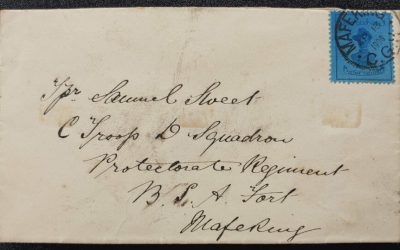 MAFEKING
C.G.H.
Tpr Samuel Sweet
C Troop D Squadron
Protectorate Regiment
B. S. A. Fort
Mafeking